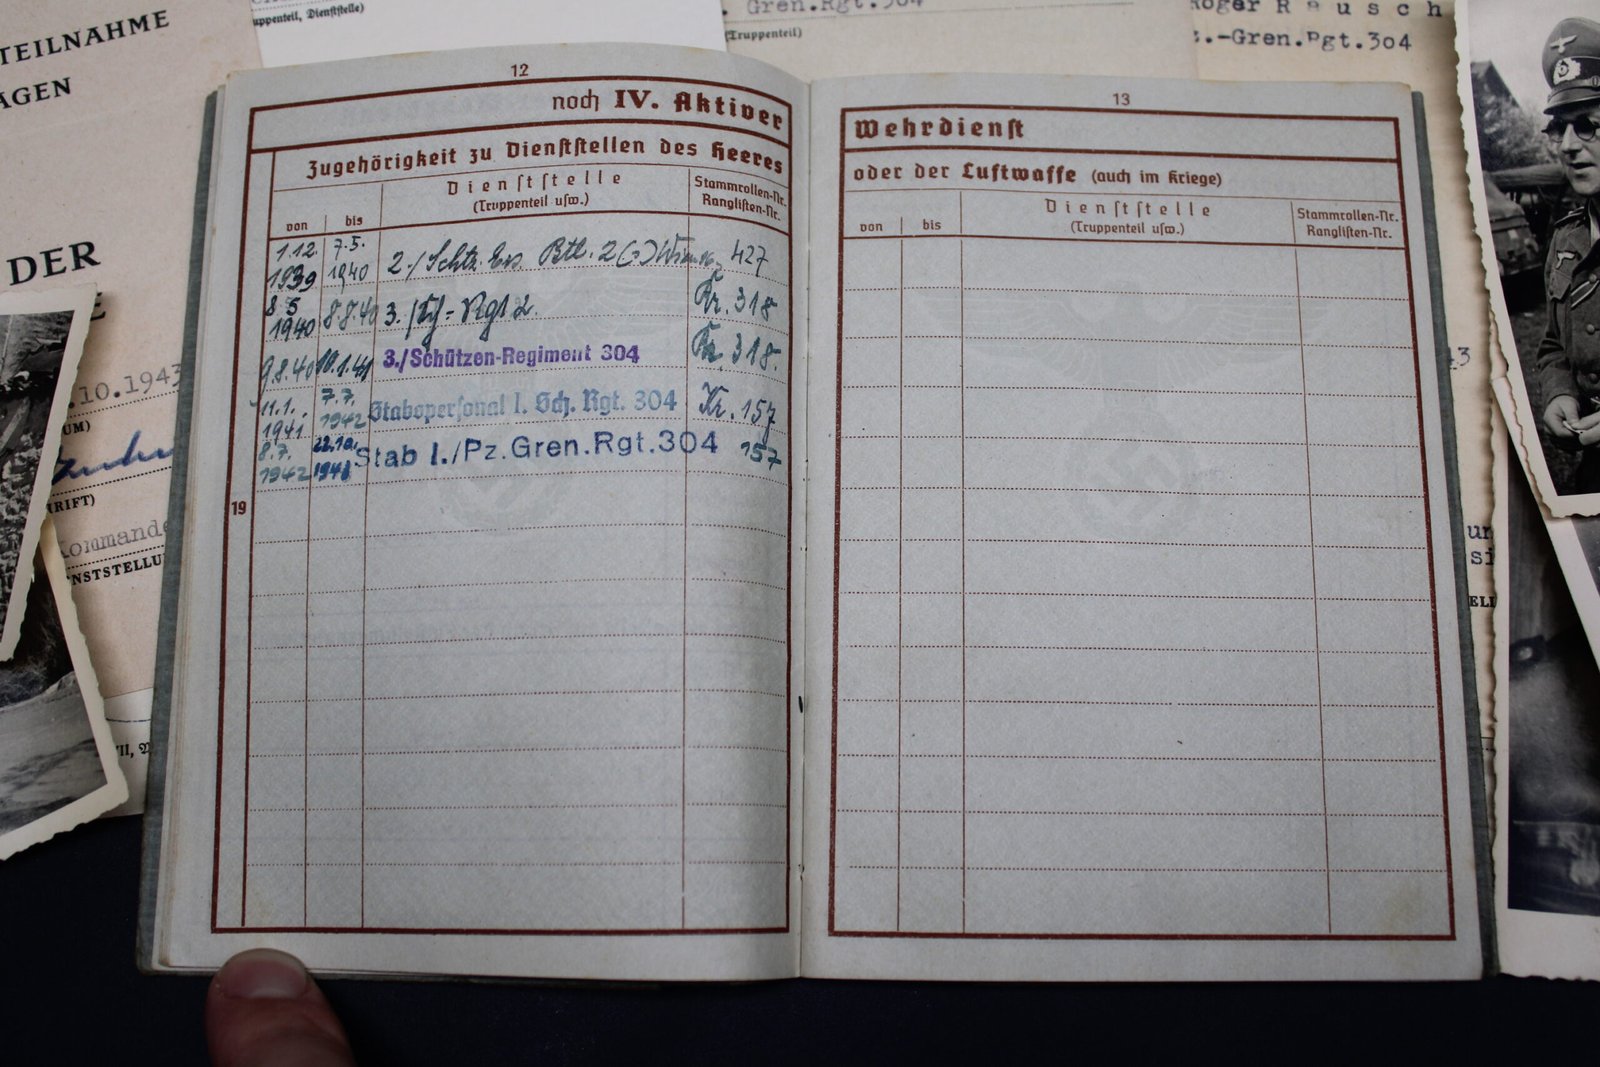 TEILNAHME
AGEN
DER
.10.1943
UM)
RIFT)
Kommande
NSTSTELLU
uppenteil, Dienststelle)
. Gren.Rgt.304
(Truppenteil)
Roger Rausch
.-Gren.Rgt.304
12
noch IV. Aktiver
Zugehörigkeit zu Dienststellen des Heeres
von
bis
Dienststelle
(Truppenteil usw.)
Stammrollen-Nr.
Ranglisten-Nr.
1.12. 1939 7.5. 1940 2./Schtz. Ers. Btl. 2 Wien 427
8.5 1940 8.8.40 3./ Rgt 2. Kr. 318
9.8.40 10.1.41 3./Schützen-Regiment 304 Kr. 318.
11.1. 1941 7.7. 1942 Stabspersonal I. Sch. Rgt. 304 Kr. 157
8.7. 1942 Stab I./Pz.Gren.Rgt.304 157
19
13
Wehrdienst
oder der Luftwaffe (auch im Kriege)
von
bis
Dienststelle
(Truppenteil usw.)
Stammrollen-Nr.
Ranglisten-Nr.